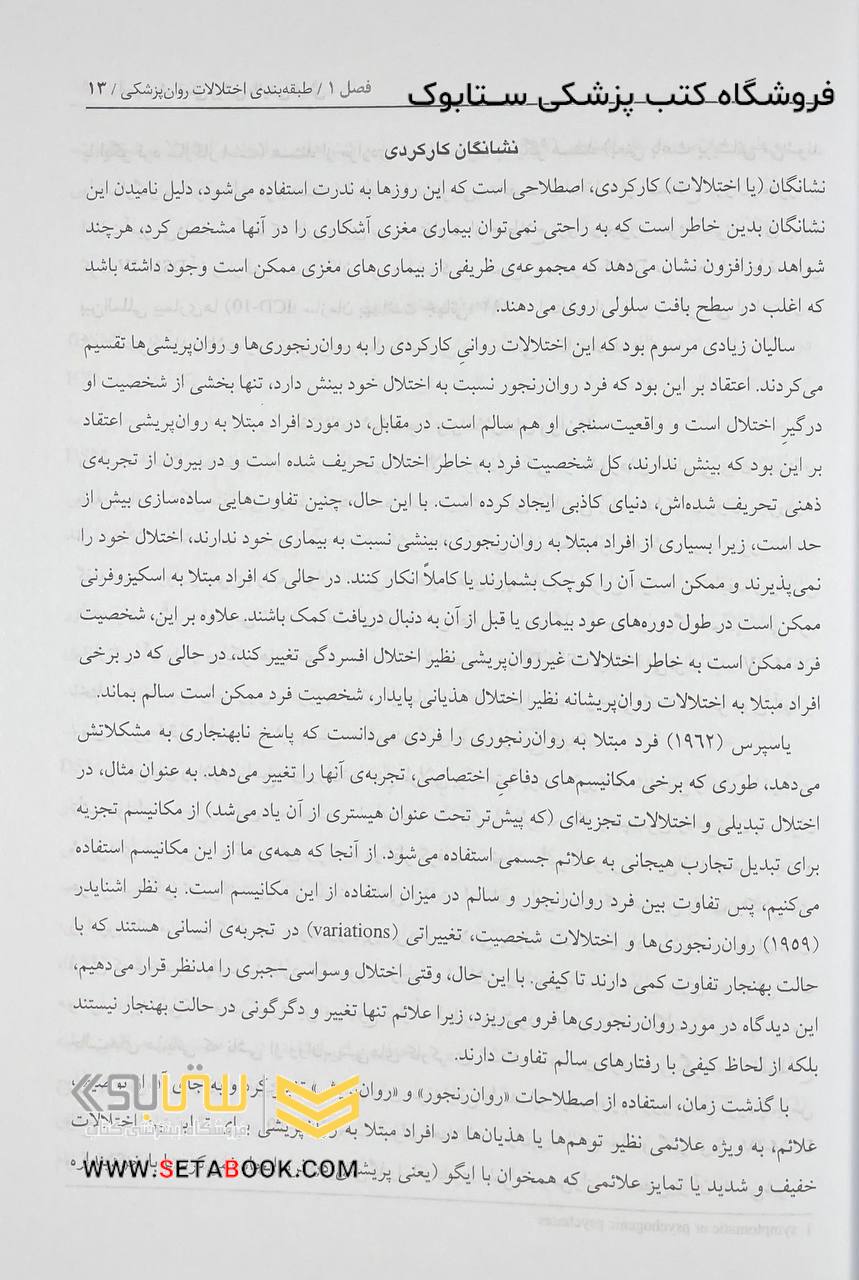 فروشگاه کتب پزشکی ستابوک
فصل ۱ / طبقه‌بندی اختلالات روان‌پزشکی / ۱۳
نشانگان کارکردی
نشانگان (یا اختلالات) کارکردی، اصطلاحی است که این روزها به ندرت استفاده می‌شود، دلیل نامیدن این
نشانگان بدین خاطر است که به راحتی نمی‌توان بیماری مغزی آشکاری را در آنها مشخص کرد، هرچند
شواهد روزافزون نشان می‌دهد که مجموعه‌ی ظریفی از بیماری‌های مغزی ممکن است وجود داشته باشد
که اغلب در سطح بافت سلولی روی می‌دهند.
سالیان زیادی مرسوم بود که این اختلالات روانیِ کارکردی را به روان‌رنجوری‌ها و روان‌پریشی‌ها تقسیم
می‌کردند. اعتقاد بر این بود که فرد روان‌رنجور نسبت به اختلال خود بینش دارد، تنها بخشی از شخصیت او
درگیرِ اختلال است و واقعیت‌سنجی او هم سالم است. در مقابل، در مورد افراد مبتلا به روان‌پریشی اعتقاد
بر این بود که بینش ندارند، کل شخصیت فرد به خاطر اختلال تحریف شده است و در بیرون از تجربه‌ی
ذهنی تحریف شده‌اش، دنیای کاذبی ایجاد کرده است. با این حال، چنین تفاوت‌هایی ساده‌سازی بیش از
حد است، زیرا بسیاری از افراد مبتلا به روان‌رنجوری، بینشی نسبت به بیماری خود ندارند، اختلال خود را
نمی‌پذیرند و ممکن است آن را کوچک بشمارند یا کاملاً انکار کنند. در حالی که افراد مبتلا به اسکیزوفرنی
ممکن است در طول دوره‌های عود بیماری یا قبل از آن به دنبال دریافت کمک باشند. علاوه بر این، شخصیت
فرد ممکن است به خاطر اختلالات غیرروان‌پریشی نظیر اختلال افسردگی تغییر کند، در حالی که در برخی
افراد مبتلا به اختلالات روان‌پریشانه نظیر اختلال هذیانی پایدار، شخصیت فرد ممکن است سالم بماند.
یاسپرس (۱۹۶۲) فرد مبتلا به روان‌رنجوری را فردی می‌دانست که پاسخ نابهنجاری به مشکلاتش
می‌دهد، طوری که برخی مکانیسم‌های دفاعیِ اختصاصی، تجربه‌ی آنها را تغییر می‌دهد. به عنوان مثال، در
اختلال تبدیلی و اختلالات تجزیه‌ای (که پیش‌تر تحت عنوان هیستری از آن یاد می‌شد) از مکانیسم تجزیه
برای تبدیل تجارب هیجانی به علائم جسمی استفاده می‌شود. از آنجا که همه‌ی ما از این مکانیسم استفاده
می‌کنیم، پس تفاوت بین فرد روان‌رنجور و سالم در میزان استفاده از این مکانیسم است. به نظر اشنایدر
(۱۹۵۹) روان‌رنجوری‌ها و اختلالات شخصیت، تغییراتی (variations) در تجربه‌ی انسانی هستند که با
حالت بهنجار تفاوت کمی دارند تا کیفی. با این حال، وقتی اختلال وسواسی-جبری را مدنظر قرار می‌دهیم،
این دیدگاه در مورد روان‌رنجوری‌ها فرو می‌ریزد، زیرا علائم تنها تغییر و دگرگونی در حالت بهنجار نیستند
بلکه از لحاظ کیفی با رفتارهای سالم تفاوت دارند.
با گذشت زمان، استفاده از اصطلاحات «روان‌رنجور» و «روان‌پریش» تغییر کرد و به جای آن از توصیف
علائم، به ویژه علائمی نظیر توهم‌ها یا هذیان‌ها در افراد مبتلا به روان‌پریشی اختلالات
خفیف و شدید یا تمایز علائمی که همخوان با ایگو (یعنی
ستابوک
فروشگاه اینترنتی کتاب
WWW.SETABOOK.COM